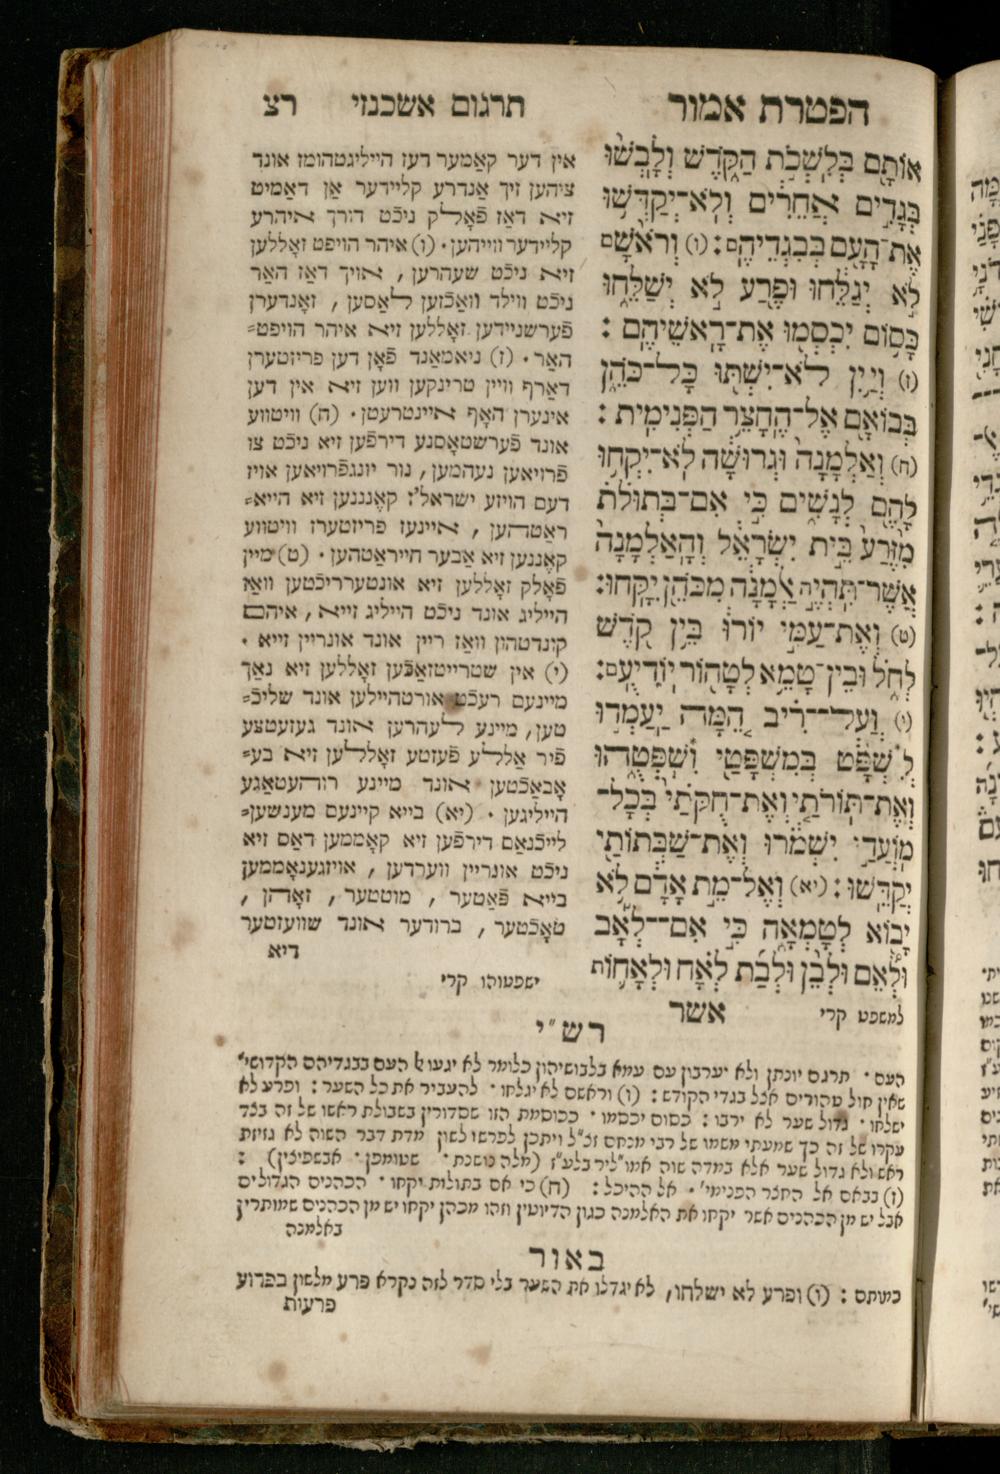 הפטרת אמור
תרגום אשכנזי
רצ
אוֹתָם בְּלִשְׁכֹת הַקֹּדֶשׁ וְלָבְשׁוּ
בְּגָדִים אֲחֵרִים וְלֹא־יְקַדְּשׁוּ
אֶת־הָעָם בְּבִגְדֵיהֶם : (ו) וְרֹאשָׁם
לֹא יְגַלֵּחוּ וּפֶרַע לֹא יְשַׁלֵּחוּ
כָּסוֹם יִכְסְמוּ אֶת־רָאשֵׁיהֶם :
(ז) וְיַיִן לֹא־יִשְׁתּוּ כָּל־כֹּהֵן
בְּבוֹאָם אֶל־הֶחָצֵר הַפְּנִימִית :
(ח) וְאַלְמָנָה וּגְרוּשָׁה לֹא־יִקְחוּ
לָהֶם לְנָשִׁים כִּי אִם־בְּתוּלֹת
מִזֶּרַע בֵּית יִשְׂרָאֵל וְהָאַלְמָנָה
אֲשֶׁר־תִּהְיֶה אַלְמָנָה מִכֹּהֵן יִקָּחוּ:
(ט) וְאֶת־עַמִּי יוֹרוּ בֵּין קֹדֶשׁ
לְחֹל וּבֵין־טָמֵא לְטָהוֹר יוֹדִיעֻם:
(י) וְעַל־רִיב הֵמָּה יַעַמְדוּ
לְשְׁפֹּט בְּמִשְׁפָּטַי וְשִׁפְּטֻהוּ
וְאֶת־תּוֹרֹתַי וְאֶת־חֻקֹּתַי בְּכָל־
מוֹעֲדַי יִשְׁמֹרוּ וְאֶת־שַׁבְּתוֹתַי
יְקַדֵּשׁוּ : (יא) וְאֶל־מֵת אָדָם לֹא
יָבוֹא לְטָמְאָה כִּי אִם־לְאָב
וּלְאֵם וּלְבֵן וּלְבַת לְאָח וּלְאָחוֹת
למשפט קרי
אשר
אין דער קאַמער דעז הייליגטהומז אונד
ציהען זיך אַנדרע קליידער אַן דאַמיט
זיא דאַז פֿאָלק ניכֿט דורך איהרע
קליידער ווייהען . (ו) איהר הויפט זאָללען
זיא ניכֿט שעהרען , אויך דאַז האַר
ניכֿט ווילד וואַכֿזען לאַסען , זאָנדערן
פֿערשניידען זאָללען זיא איהר הויפט=
האַר . (ז) ניאמאַנד פֿאָן דען פריזטערן
דאַרף וויין טרינקען ווען זיא אין דען
אינערן האָף איינטרעטן . (ח) וויטווע
אונד פֿערשטאָסנע דירפֿען זיא ניכֿט צו
פֿרויאַען נעהמען , נור יונגפֿרויאַען אויז
דעם הויזע ישראל'ז קאָננען זיא הייא=
ראַטהען , איינעז פריזטערז וויטווע
קאָננען זיא אַבער הייראַטהען . (ט) מיין
פֿאָלק זאָללען זיא אונטערריכֿטען וואַז
הייליג אונד ניכֿט הייליג זייא , איהם
קונדטהון וואַז ריין אונד אונריין זייא .
(י) אין שטרייטזאַכֿען זאָללען זיא נאַך
מיינעם רעכֿט אורטהיילען אונד שליכֿ=
טען , מיינע לעהרען אונד געזעטצע
פֿיר אַללע פֿעזטע זאָללען זיא בע=
אָבאַכֿטען אונד מיינע רוהעטאַגע
הייליגען . (יא) בייא קיינעם מענשען=
לייכֿנאַם דירפֿען זיא קאָממען דאַס זיא
ניכֿט אונריין ווערדען , אויזגענאָממען
בייא פֿאַטער , מוטטער , זאָהן ,
טאָכֿטער , ברודער אונד שוועזטער
דיא
ישפטוהו קרי
רש״י
העם . תרגם יונתן ולא יערבון עם עמא בלבושיהון כלומר לא יגעו העם בבגדיהם הקדושי'
שאין חול טהורים אצל בגדי הקודש : (ו) וראשם לא יגלחו . להעביר את כל השער : ופרע לא
ישלחו . גדול שער לא ירבו : כסום יכסמו . ככוסמת הזו שסדורין בשבולת ראשו של זה בצד
עקרו של זה כך שמעתי משמו של רבי מנחם זצ"ל ויתכן לפרשו לשון מדת דבר השוה לא גזיזת
ראש ולא גדול שער אלא במדה שוה
(ז) בבאם אל החצר הפנימי' . אל ההיכל : (ח) כי אם בתולות יקחו . הכהנים הגדולים
אבל יש מן הכהנים אשר יקחו את האלמנה כגון הדיוטין וזהו מכהן יקחו יש מן הכהנים שמותרין
באלמנה
באור
(ו) ופרע לא ישלחו , לא יגדלו את השער בלי סדר לזה נקרא פרע מלשון בפרוע
פרעות